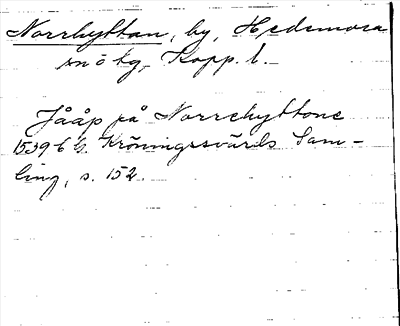 Norrhyttan, by, Hedemora
sn o kg, Kopp. l.
Jååp på Norrehyttone
1539 6/6. Kröningssvärds Sam-
ling, s. 152.